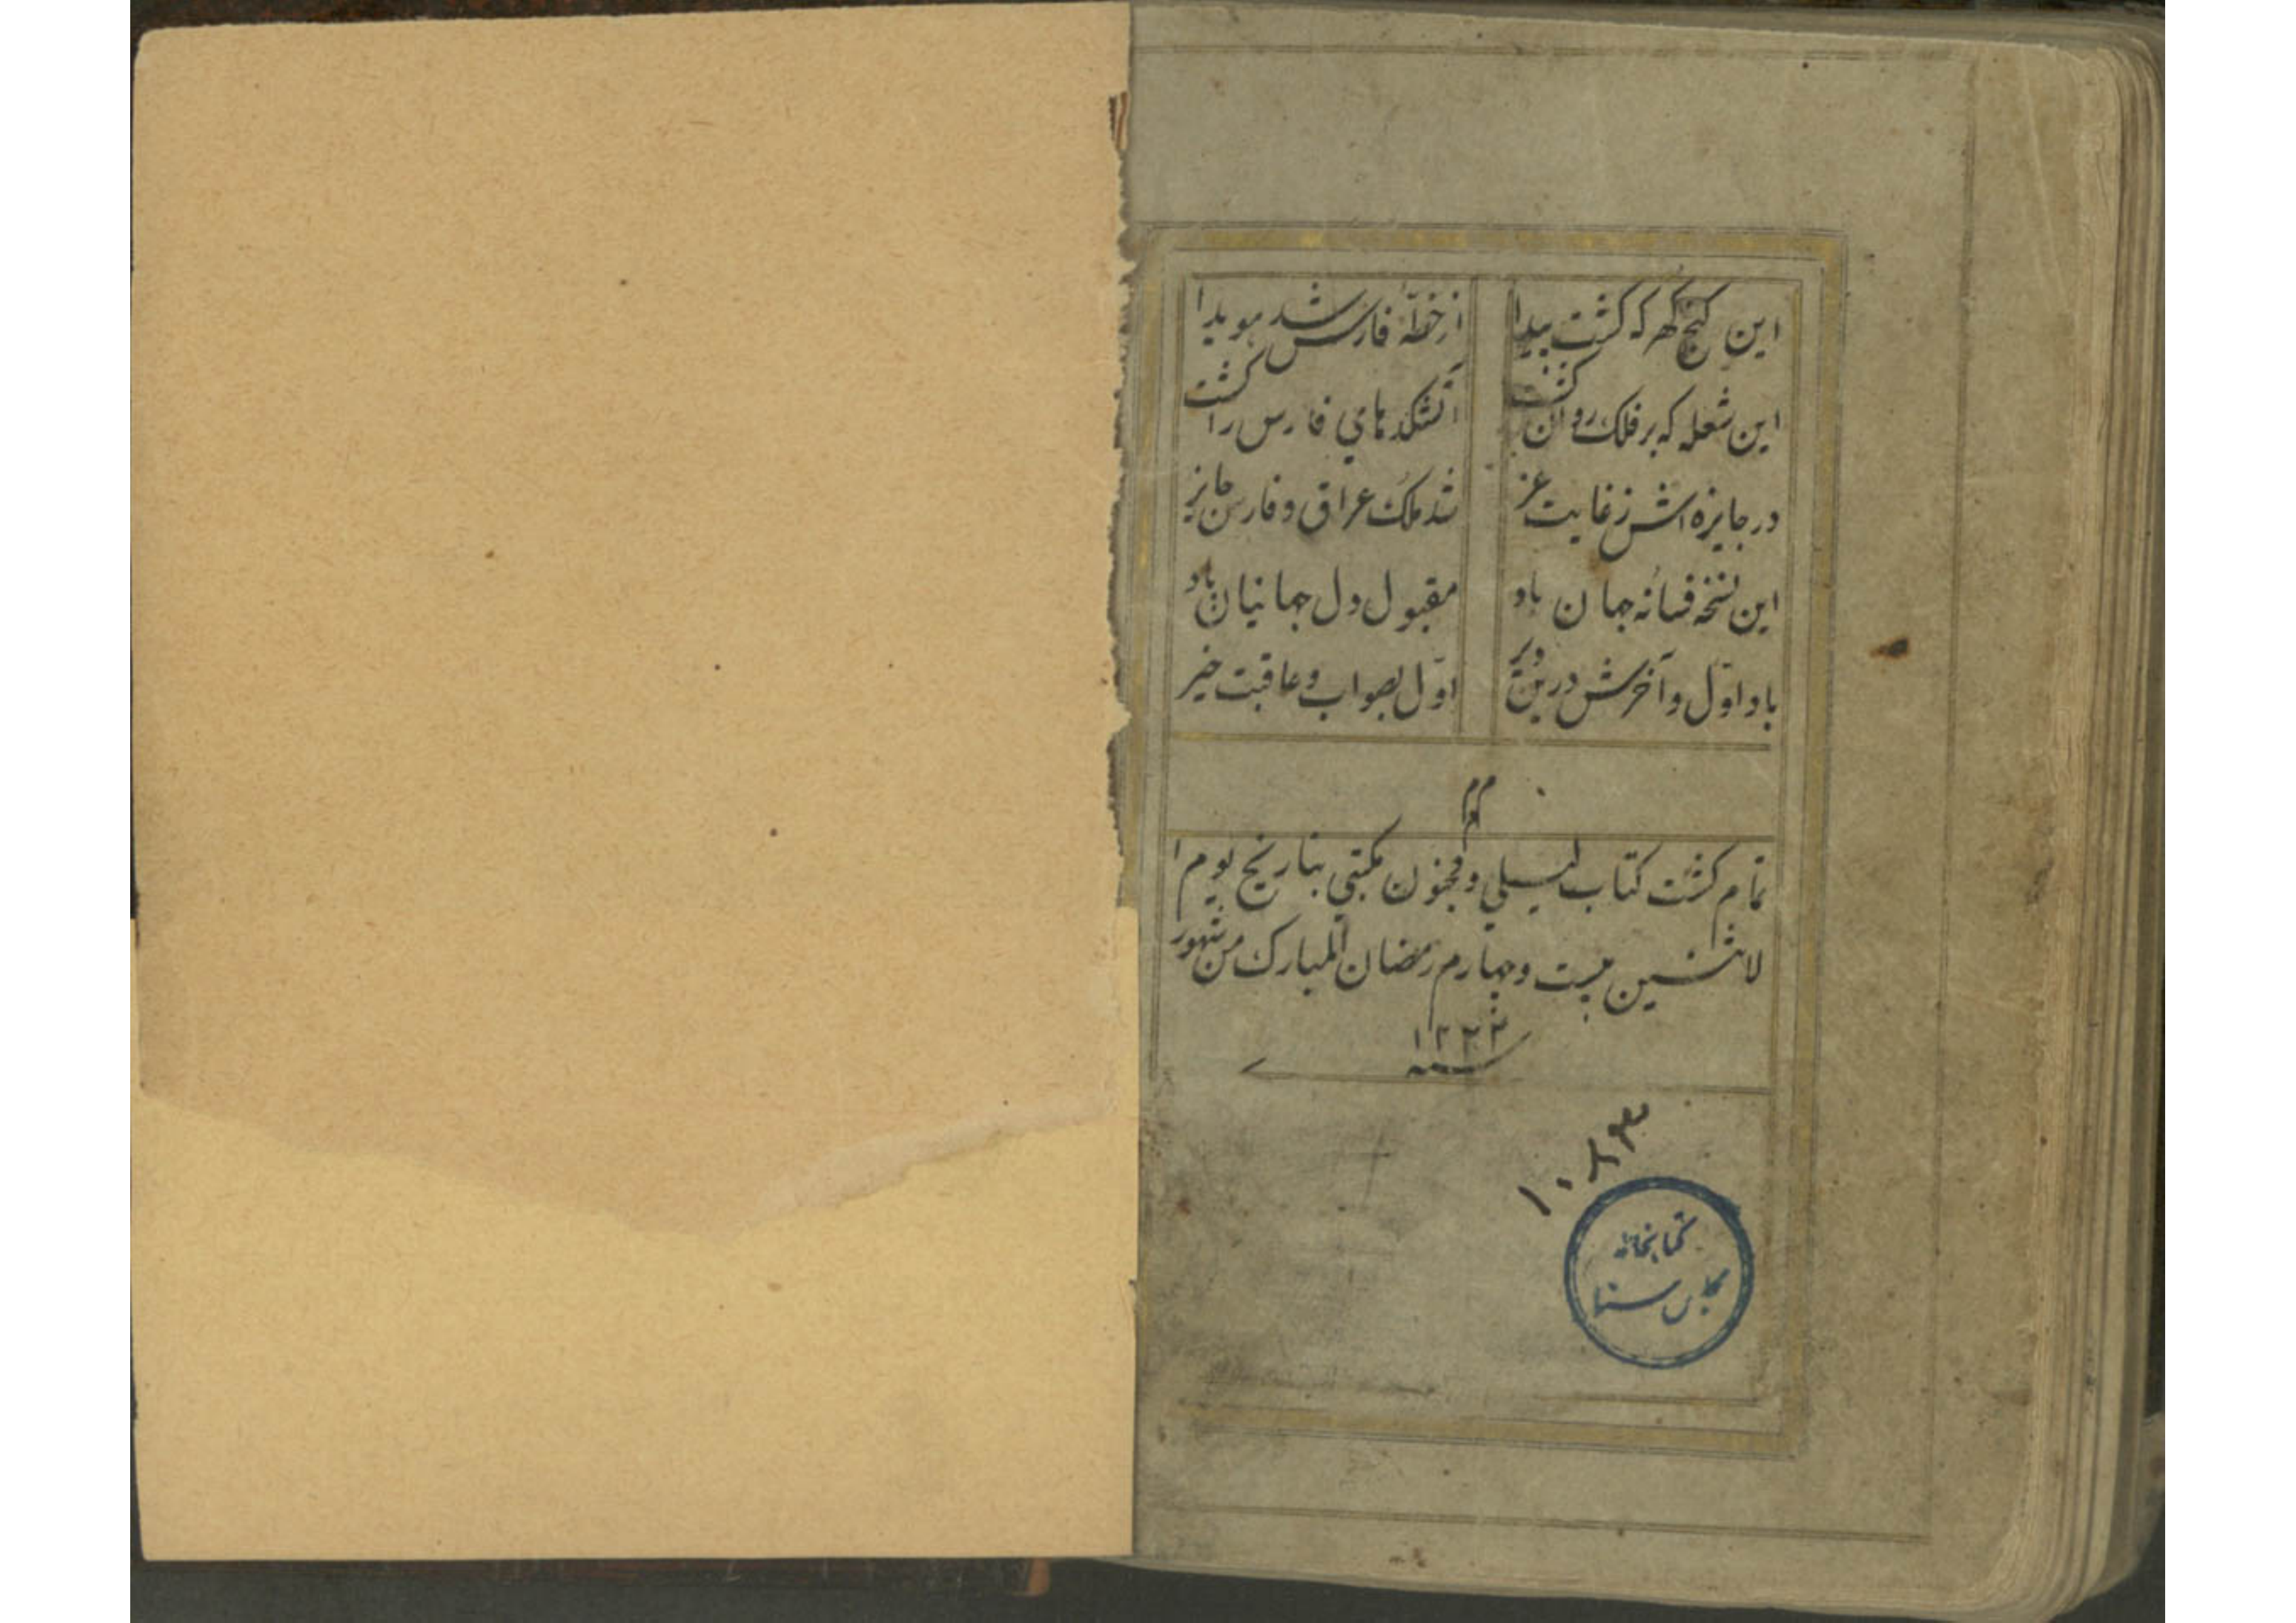 این گنج گهر که گشت پیدا از خطّهٔ فارس شد هویدا
این شعله که بر فلک روان گشت آتشکدهای فارس را گشت
در جایزه اش ز غایت عز شد ملک عراق و فارس جایز
این نسخه فسانه جهان باد مقبول دل جهانیان باد
باد اوّل و آخرش درین دیر اوّل بصواب و عاقبت خیر
تمام گشت کتاب لیلی و مجنون مکتبی بتاریخ یوم ا
لاثنین بیست و چهارم رمضان المبارک من شهور
سنه ۱۲۲۳
۱۰۸۹۳
کتابخانه
مجلس سنا